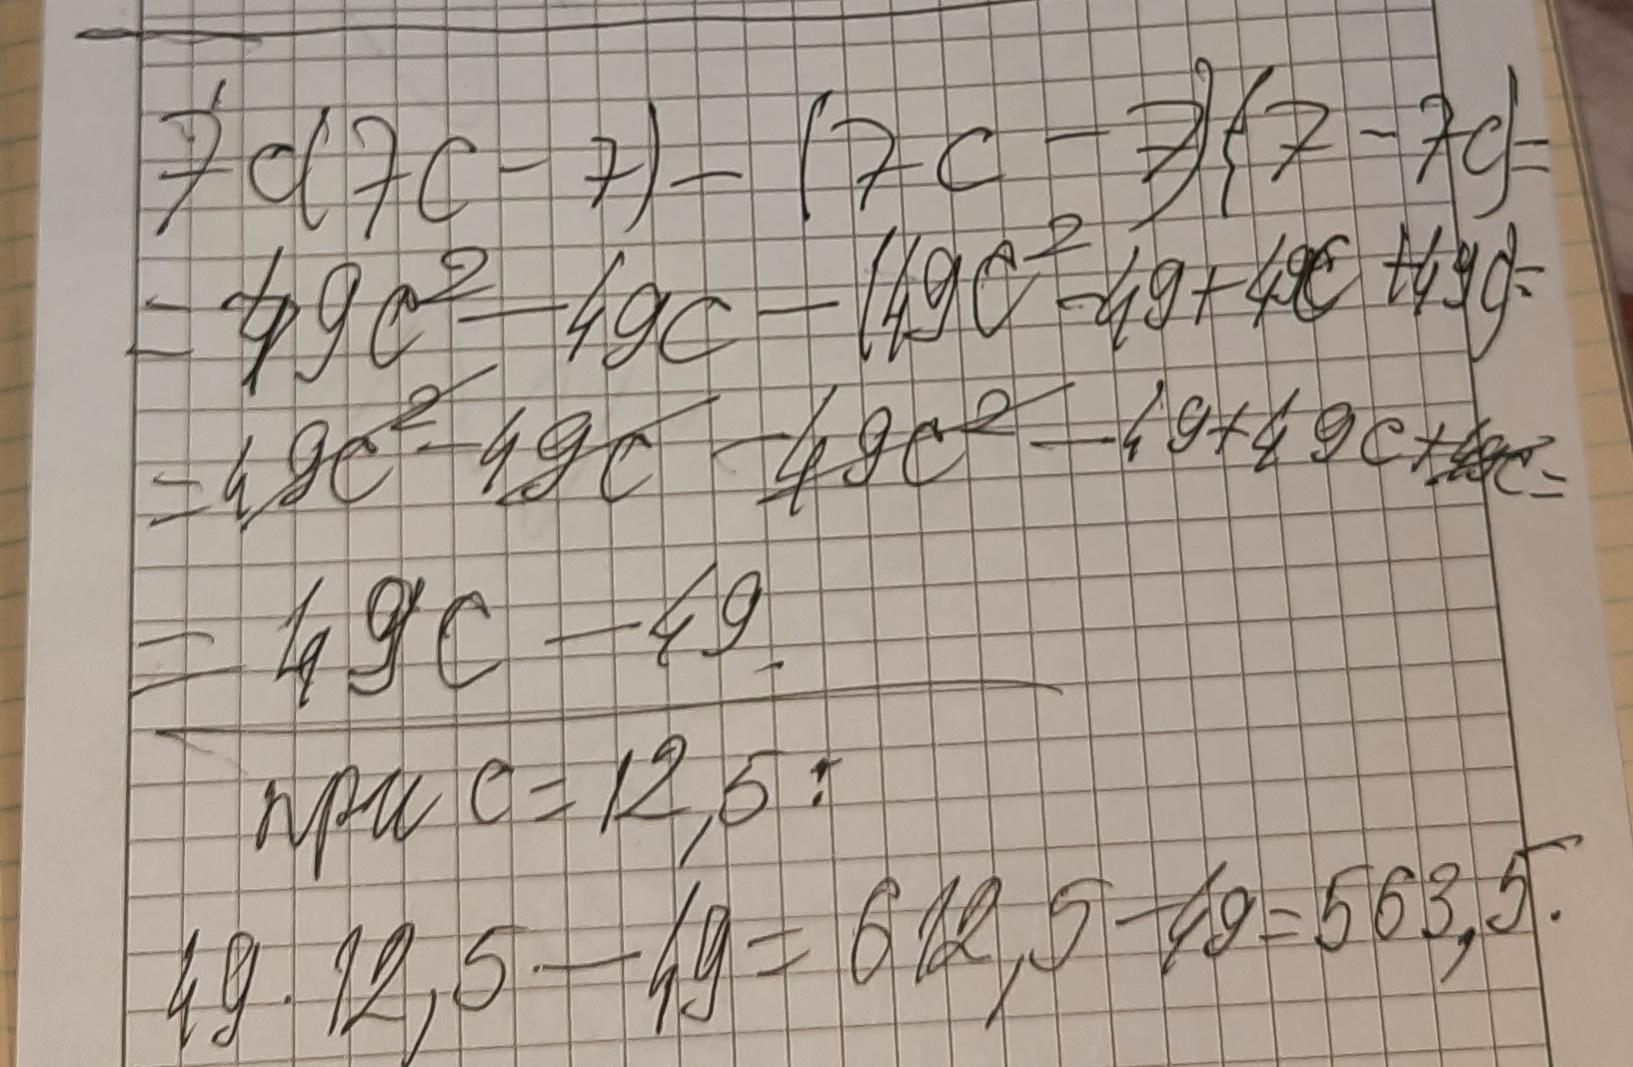 7c(7c - 7) - (7c - 7)(7 - 7c) =
= 49c² - 49c - (49c² - 49 + 49c + 49c) =
= 49c² - 49c - 49c² - 49 + 49c + 49c =
= 49c - 49.
при c = 12,5:
49 · 12,5 - 49 = 612,5 - 49 = 563,5.